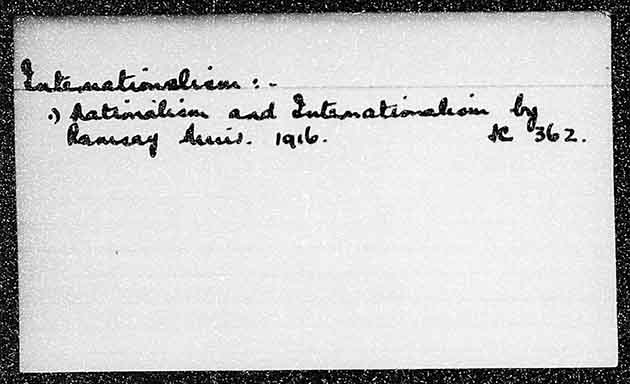 Internationalism :-
.) Nationalism and Internationalism by
Ramsay Muir. 1916. K 362.